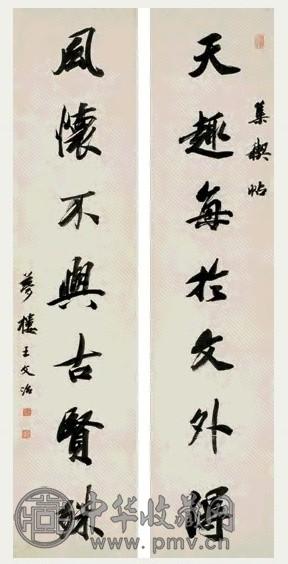 集禊帖
天趣每於文外得
風懷不與古賢殊
夢樓王文治
中华收藏网
www.pmv.cn